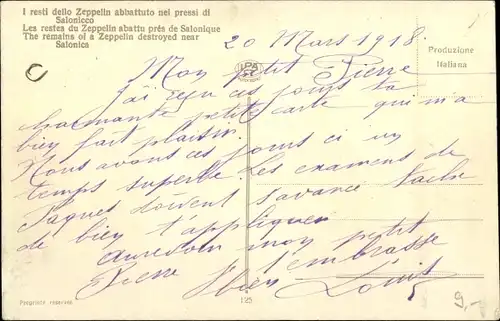 I resti dello Zeppelin abbattuto nei pressi di
Salonicco
Les restes du Zeppelin abattu près de Salonique
The remains of a Zeppelin destroyed near
Salonica
Produzione
Italiana
20 Mars 1918.
Mon petit Pierre
J'ai reçu ces jours ta
charmante petite carte qui m'a
bien fait plaisir.
Nous avons ces jours ci un
temps superbe. Les examens de
Paques doivent s'avancer tache
de bien t'appliquer
aurevoir mon petit
Pierre t'embrasse
bien Louis
Proprietà riservata
125
9,-